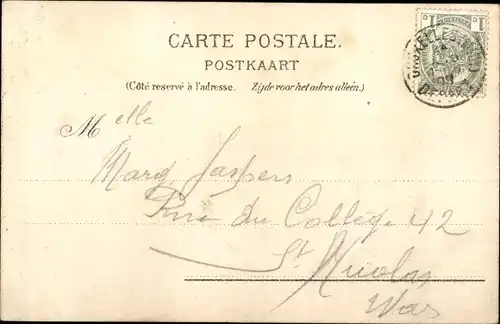 CARTE POSTALE.
POSTKAART
(Côté reservé à l'adresse. Zijde voor het adres alleen.)
Melle
Marg Jaspers
Rue du Collège 42
St Nicolas
Waes
1c 1c
BRUXELLES
DEPART